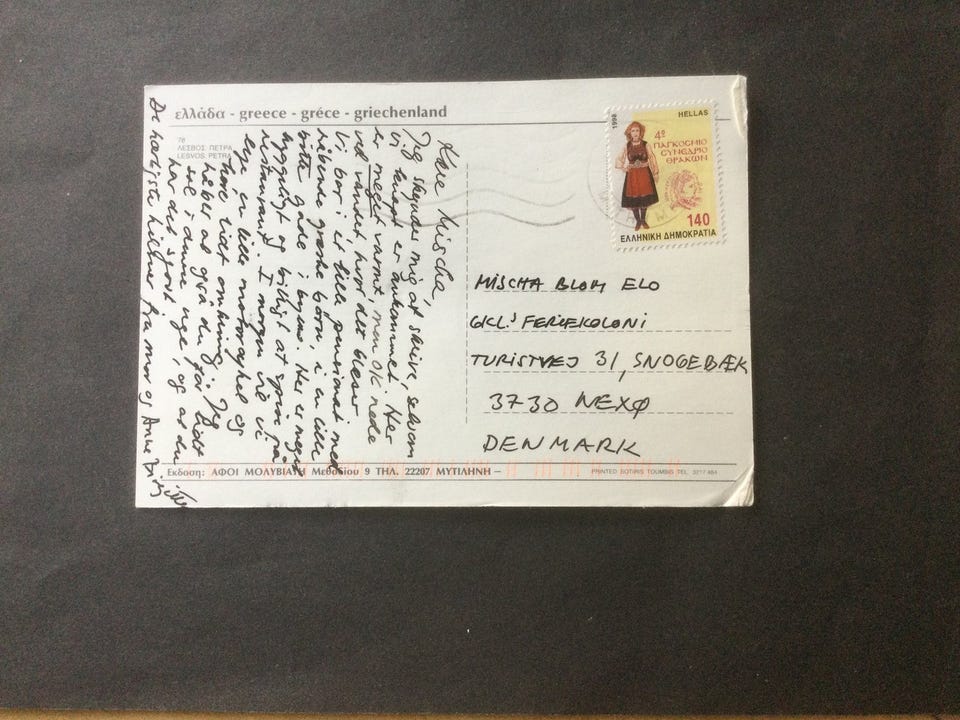 ελλάδα - greece - gréce - griechenland
78
ΛΕΣΒΟΣ ΠΕΤΡΑ
LESVOS PETRA
Kære Mischa,
Jeg skynder mig at skrive, selvom
vi lenest er ankommet. Her
er meget varmt, men OK nede
ved vandet hvor det blæser
Vi bor i et lille pensionat med
råbende græske børn, i en lille
bitte gade i byen. Her er meget
hyggeligt og billigt at spise på
restaurant. I morgen vil vi
leje en lille motorcykel og
køre lidt omkring. Jeg
håber at også du får lidt
sol i denne uge, og at du
har det sjovt!
De hærligste hilsner fra mor og Anne Birgitte
1998
HELLAS
4º
ΠΑΓΚΟΣΜΙΟ
ΣΥΝΕΔΡΙΟ
ΘΡΑΚΩΝ
140
ΕΛΛΗΝΙΚΗ ΔΗΜΟΚΡΑΤΙΑ
MISCHA BLOM ELO
GKL.S FERIEKOLONI
TURISTVEJ 31, SNOGEBÆK
3730 NEXØ
DENMARK
Εκδοση: ΑΦΟΙ ΜΟΛΥΒΙΑΤΗ Μεθοδίου 9 ΤΗΛ. 22207 ΜΥΤΙΛΗΝΗ —
PRINTED SOTIRIS TOUMBIS TEL. 3217 464